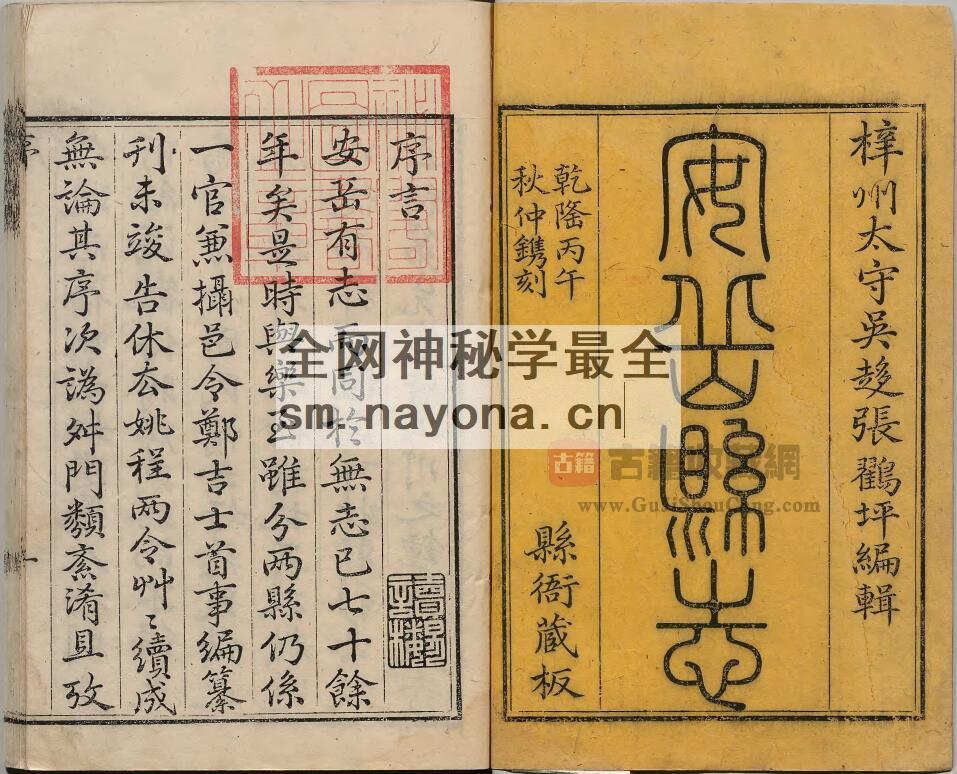 梓州太守吳趍張鸖坪編輯
安岳縣志
乾隆丙午
秋仲鐫刻
縣衙藏板
序言
安岳有志而同於無志已七十餘
年矣是時與樂至雖分兩縣仍係
一官兼攝邑令鄭吉士首事編纂
刊未竣告休厺姚程两令艸〻續成
無論其序次譌舛門類紊淆且攷
序
一
全网神秘学最全
sm.nayona.cn
古籍
www.GujiShouCang.com